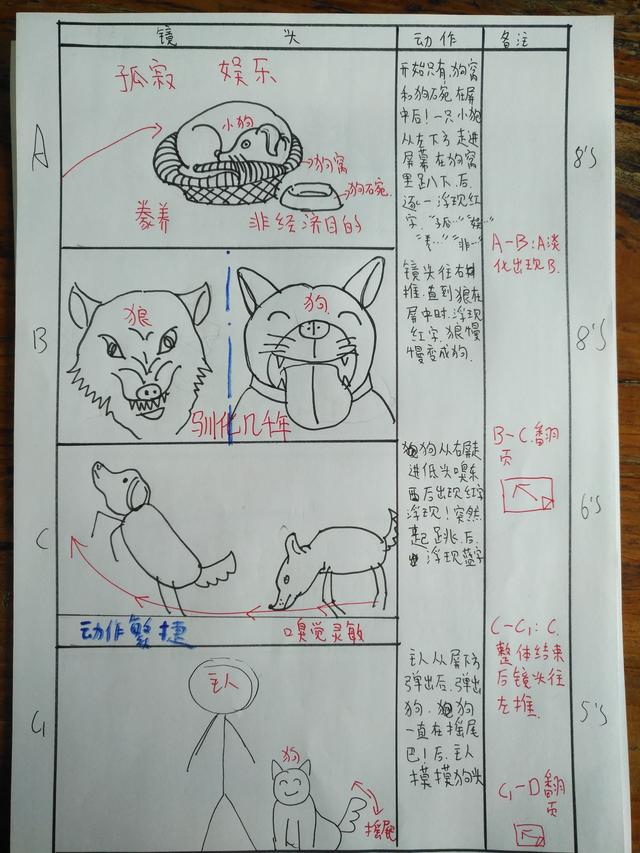 镜 头 动作 备注
A
孤寂 娱乐
小狗
狗窝
狗石碗
豢养
非经济目的
开始只有狗窝
和狗石碗在屏
中后！一只小狗
从左下方走进
屏幕在狗窝
里趴下.后.
逐一浮现红
字."孤…""娱…"
"豢…""非…"
8'S
A-B:A淡
化出现B.
B
狼
狗
驯化几千年
镜头往右
推.直到狼在
屏中时.浮现
红字.狼慢
慢变成狗.
8'S
B-C.翻
页
C
动作繁捷
嗅觉灵敏
狗从右屏走
进低头嗅东
西后出现红字
浮现！突然
起跳.后.
浮现蓝字
6'S
C-C1:C.
整体结束
后镜头往
左推.
C1
主人
狗
摇尾
主人从屏下方
弹出后.弹出
狗.狗
一直在摇尾
巴！后.主人
摸摸狗头
5'S
C1-D翻
页